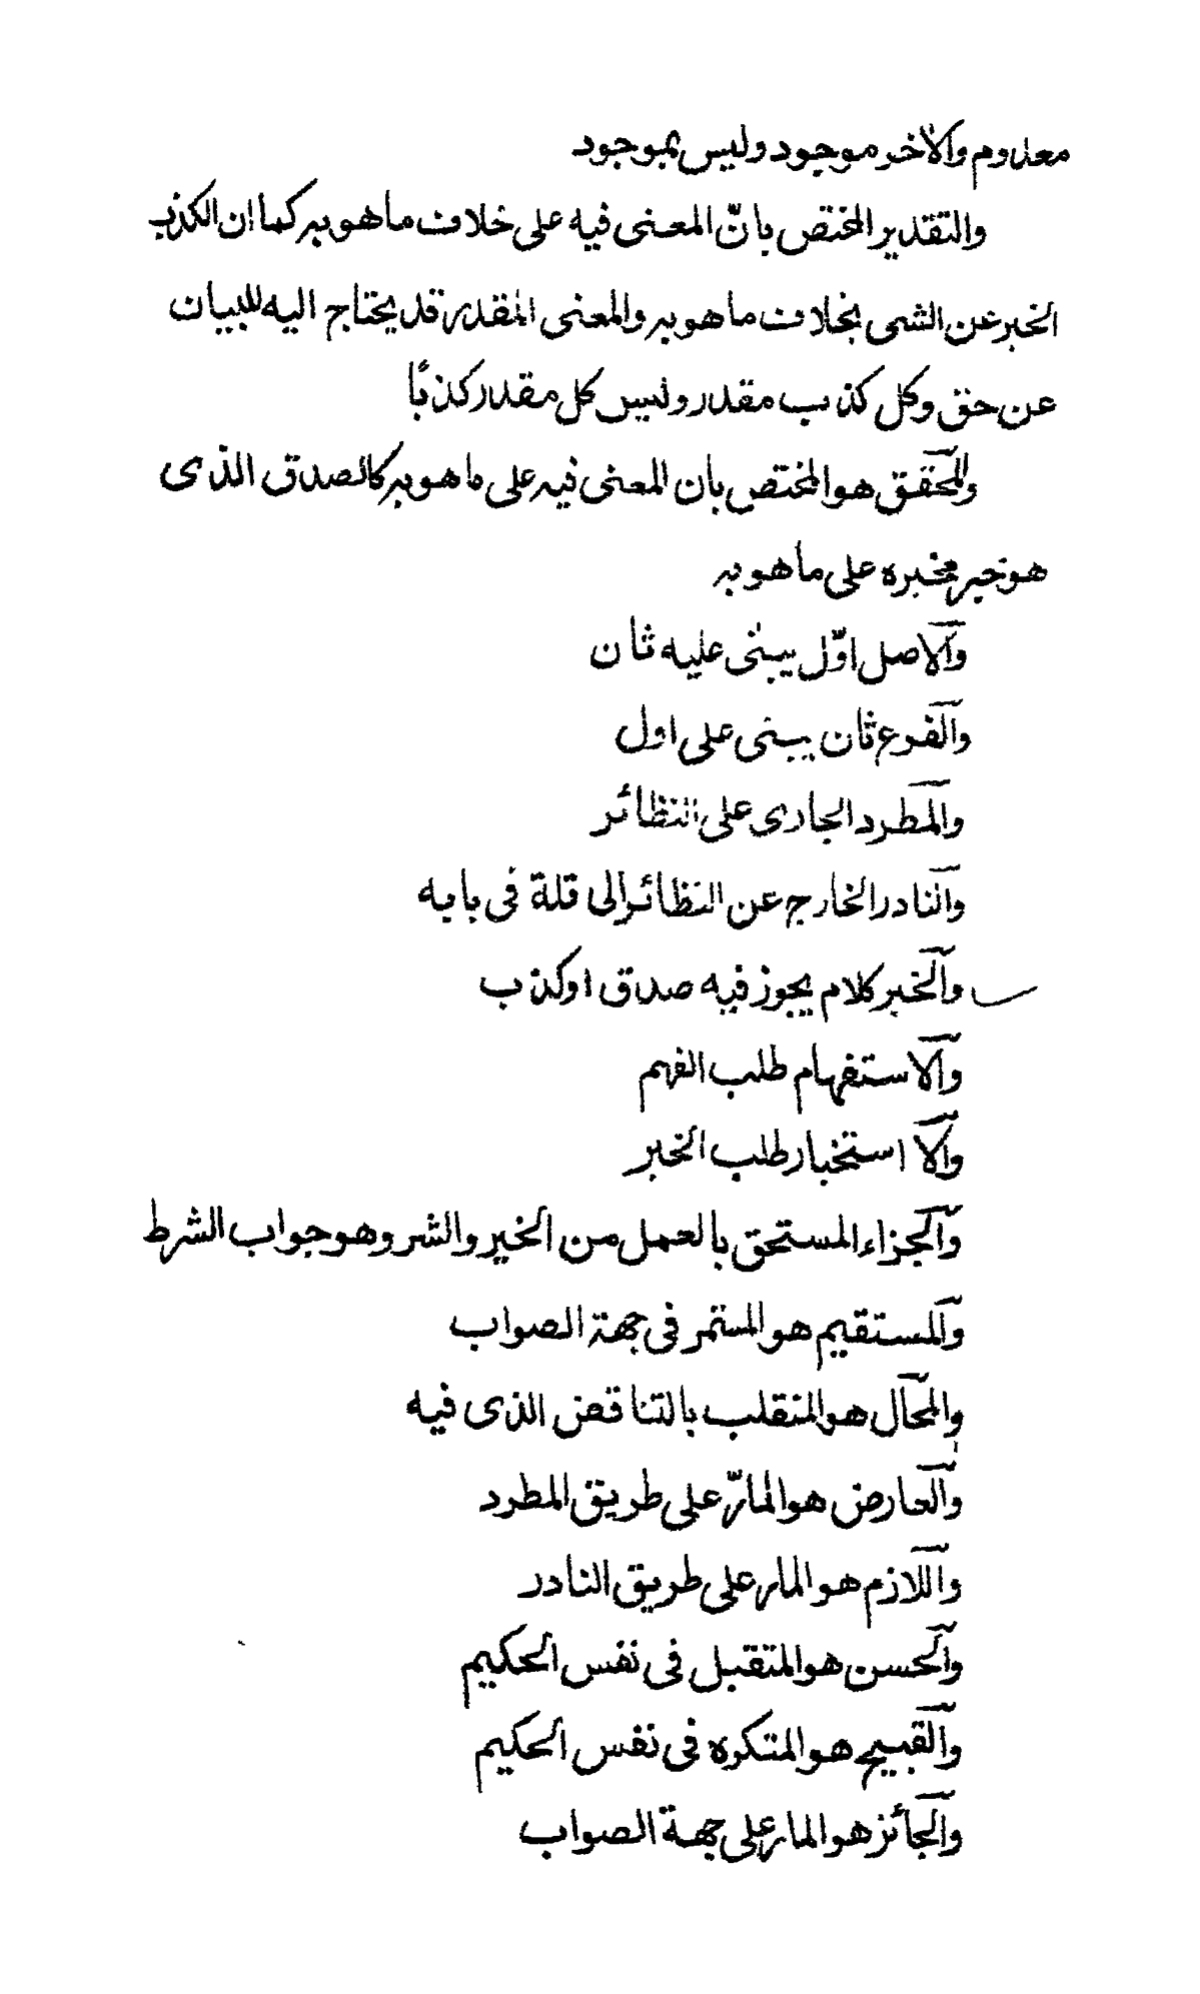 معدوم والآخر موجود وليس بموجود
والتقدير المختص بانّ المعنى فيه على خلاف ما هو به كما ان الكذب
الخبر عن الشى بخلاف ما هو به والمعنى المقدر قد يحتاج اليه للبيان
عن حق وكل كذب مقدر وليس كل مقدر كذبًا
والمحقق هو المختص بان المعنى فيه على ما هو به كالصدق الذى
هو خبر مخبره على ما هو به
والاصل اوّل يبنى عليه ثان
والفرع ثان يبنى على اول
والمطرد الجارى على النظائر
والنادر الخارج عن النظائر الى قلة فى بابه
والخبر كلام يجوز فيه صدق او كذب
والاستفهام طلب الفهم
والا استخبار طلب الخبر
والجزاء المستحق بالعمل من الخير والشر وهو جواب الشرط
والمستقيم هو المستمر فى جهة الصواب
والمحال هو المنقلب بالتناقض الذى فيه
والعارض هو المارّ على طريق المطرد
واللازم هو المار على طريق النادر
والحسن هو المتقبل فى نفس الحكيم
والقبيح هو المتكره فى نفس الحكيم
والجائز هو المار على جهة الصواب